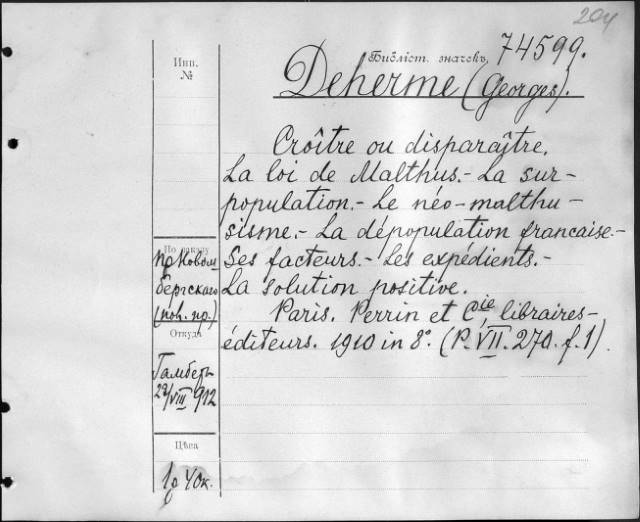 204
Библіот. значекъ, 74599.
Инв.
№
Deherme (Georges).
Croître ou disparaître.
La loi de Malthus.- La sur-
population.- Le néo-malthu-
sisme.- La dépopulation francaise.-
Ses facteurs.- Les expédients.-
La solution positive.
Paris. Perrin et Cie, libraires-
éditeurs. 1910 in 8°. (P. VII. 270. f. 1)
По заказу
пр. Новом
бергскаго
(пок. пр.)
Откуда
Гамберъ
VIII 912
Цѣна
1р 40к.